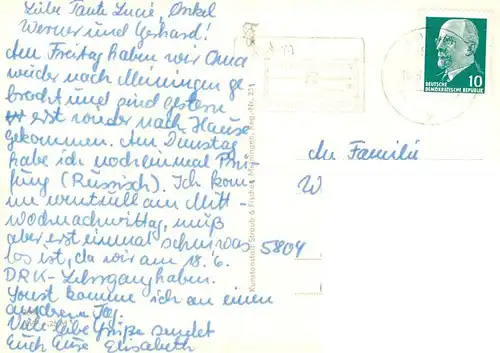 Liebe Tante Lucie, Onkel
Werner und Gerhard!
Am Freitag haben wir Oma
wieder nach Meiningen ge
bracht und sind gestern
erst wieder nach Hause
gekommen. Am Dienstag
habe ich noch einmal Prü-
fung (Russisch). Ich kom-
me eventuell am Mitt-
wochnachmittag, muß
aber erst einmal sehn was
los ist, da wir am 18.6.
DRK-Lehrgang haben.
Sonst komme ich an einen
anderen Tag.
Viele liebe Grüße sendet
Euch Eure Elisabeth
Kunstanstalt Straub & Fischer, Meiningen
10
DEUTSCHE
DEMOKRATISCHE REPUBLIK
An Familie
W
5804